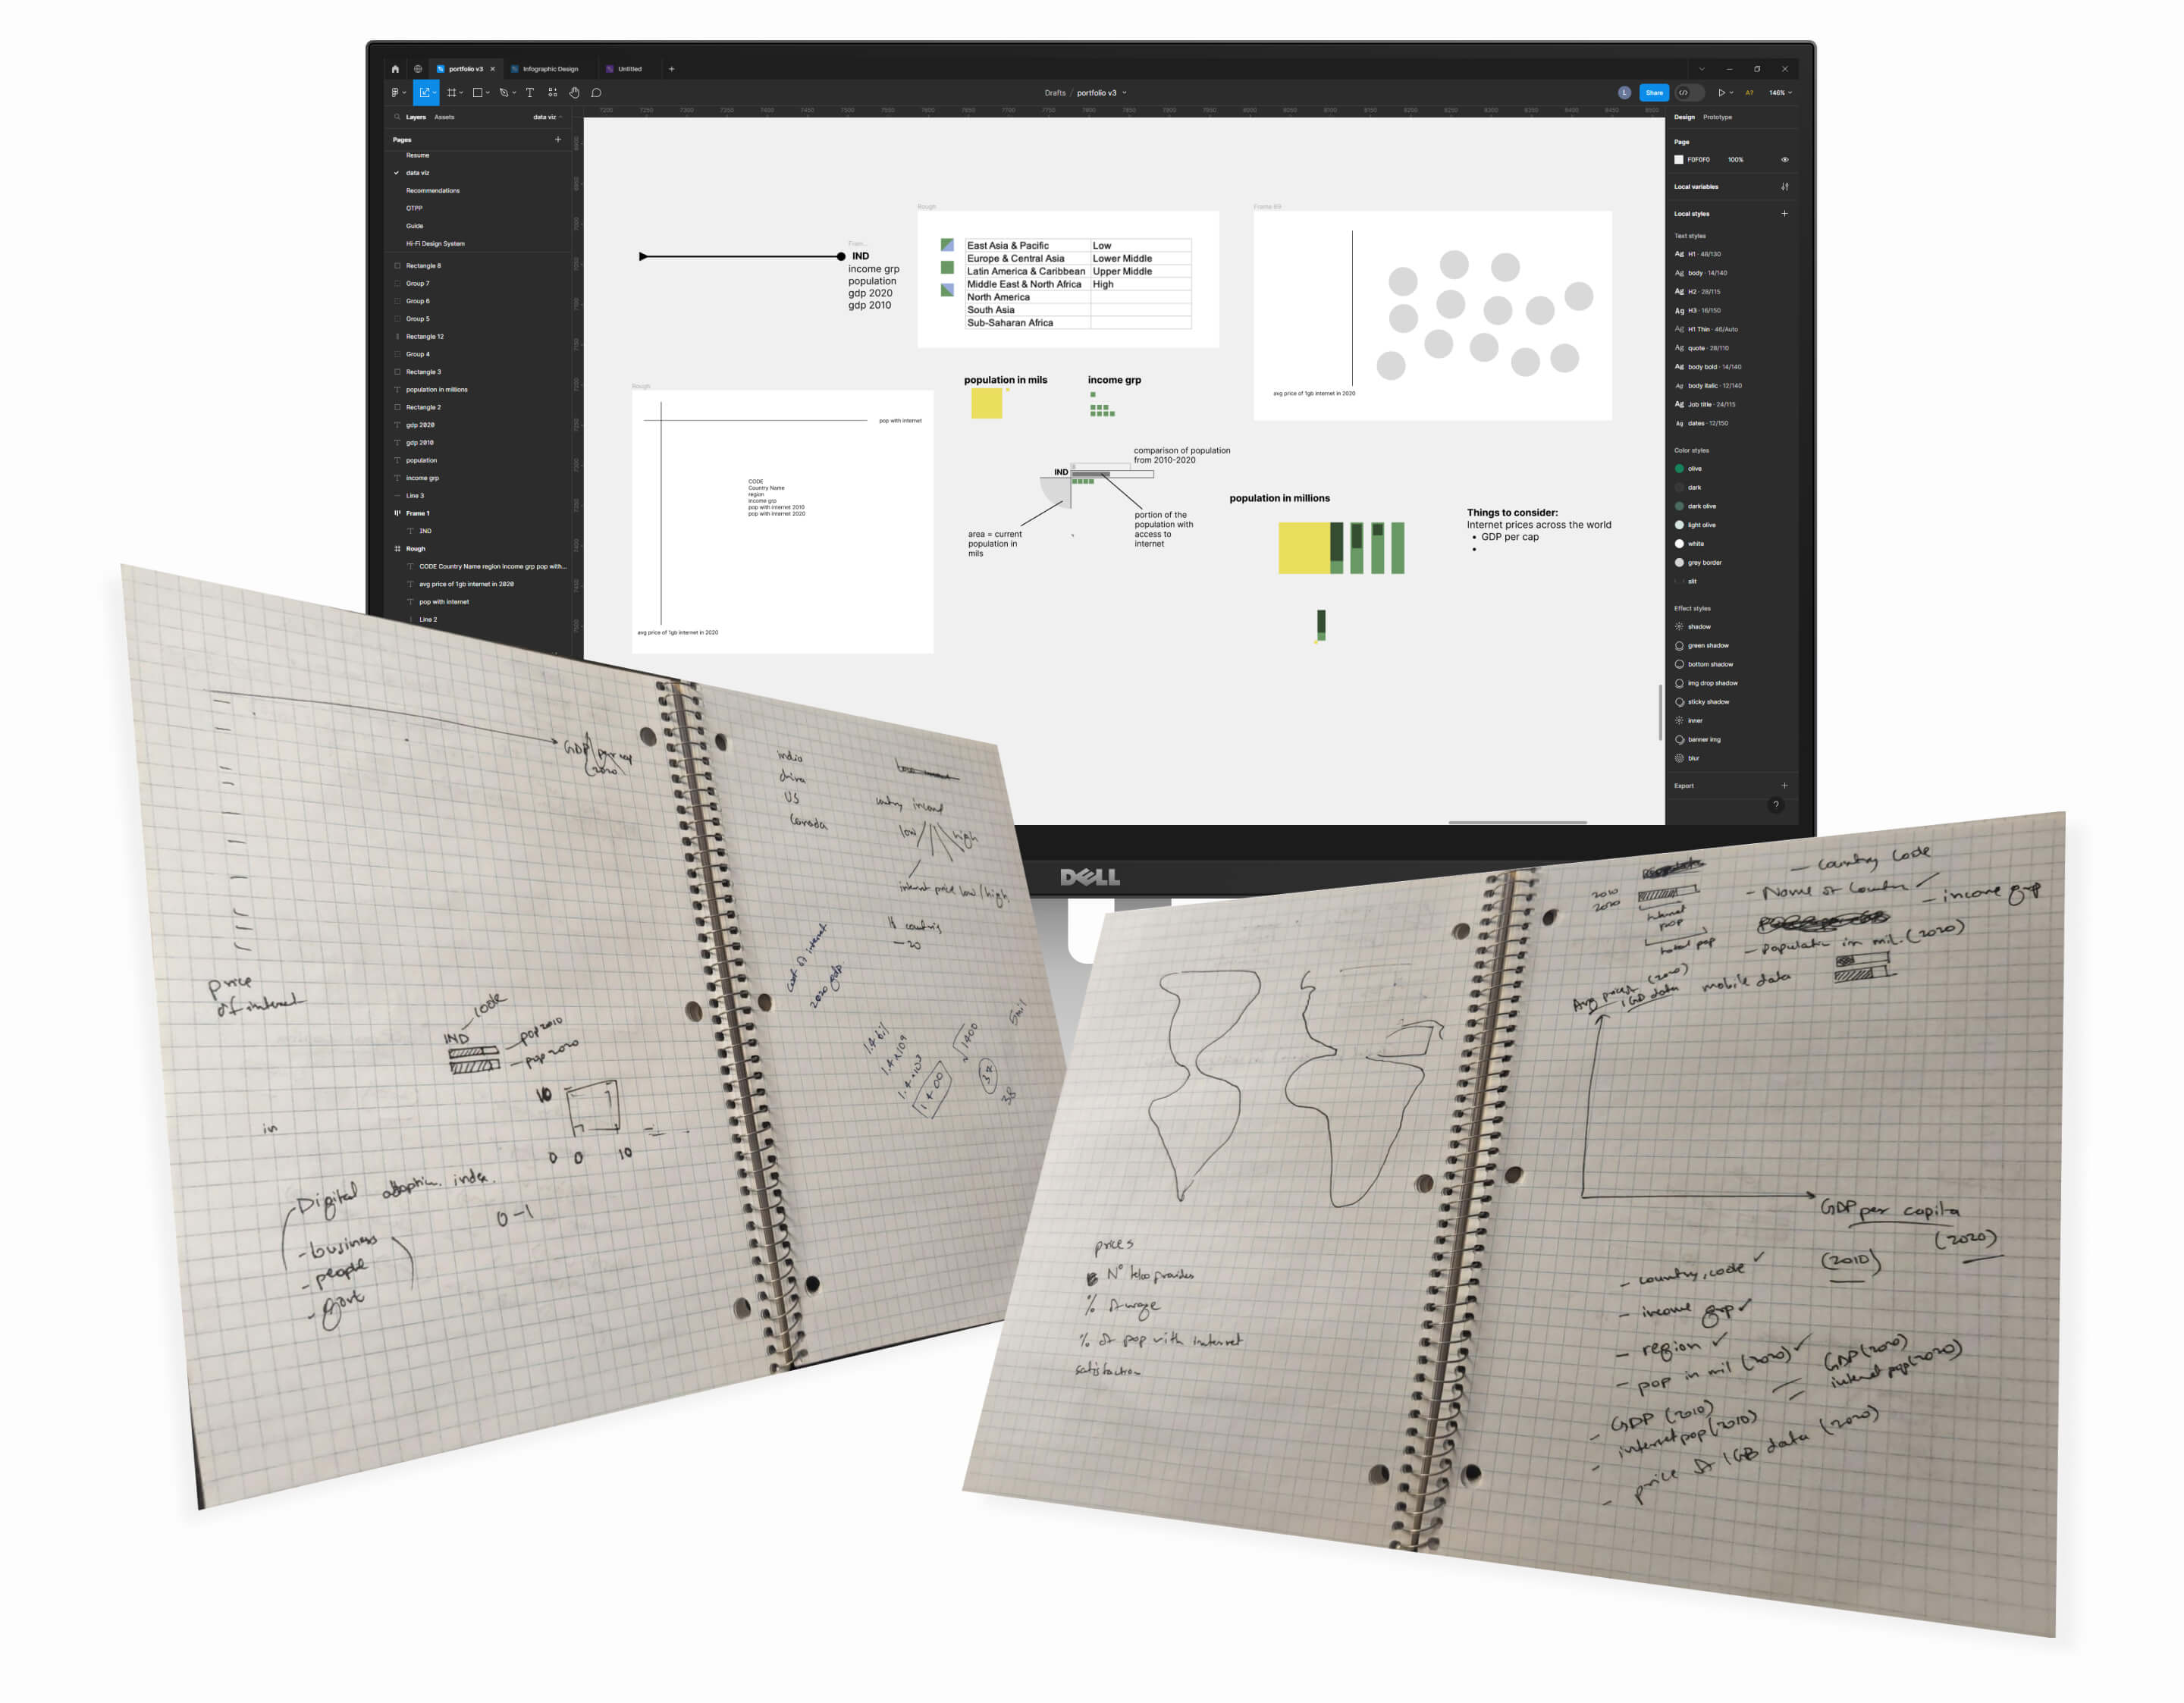 portfolio v3
Infographic Design
Untitled
Drafts / portfolio v3
L
Share
A?
146%
Layers
Assets
data viz
Pages
Resume
data viz
Recommendations
OTPP
Guide
Hi-Fi Design System
Rectangle 8
Group 7
Group 6
Group 5
Rectangle 12
Group 4
Rectangle 3
population in millions
Rectangle 2
gdp 2020
gdp 2010
population
income grp
Line 3
Frame 1
IND
Rough
CODE Country Name region income grp pop with...
avg price of 1gb internet in 2020
pop with internet
Line 2
Fram...
IND
income grp
population
gdp 2020
gdp 2010
Rough
East Asia & Pacific Low
Europe & Central Asia Lower Middle
Latin America & Caribbean Upper Middle
Middle East & North Africa High
North America
South Asia
Sub-Saharan Africa
Frame 69
avg price of 1gb internet in 2020
Rough
pop with internet
CODE
Country Name
region
income grp
pop with internet 2010
pop with internet 2020
avg price of 1gb internet in 2020
population in mils
income grp
comparison of population
from 2010-2020
IND
area = current
population in
mils
portion of the
population with
access to
internet
population in millions
Things to consider:
Internet prices across the world
• GDP per cap
•
Design
Prototype
Page
F0F0F0 100%
Local variables
Local styles
Text styles
Ag H1 · 48/130
Ag body · 14/140
Ag H2 · 28/115
Ag H3 · 16/150
Ag H1 Thin · 46/Auto
Ag quote · 28/110
Ag body bold · 14/140
Ag body italic · 12/140
Ag Job title · 24/115
Ag dates · 12/150
Color styles
olive
dark
dark olive
light olive
white
grey border
slit
Effect styles
shadow
green shadow
bottom shadow
img drop shadow
sticky shadow
inner
banner img
blur
Export
?
DELL
GDP per cap
(2020
price
of internet
IND
code
pop 2010
pop 2020
10
0 0 10
in
Digital adoption index.
0-1
- business
- people
- govt
india
china
US
Canada
country income
low high
internet price low/high
countries
20
cost of internet
2020 gdp
1.4 bil
1.4×10⁹
1400
√1400
37
38
5mil
prices
% of wage
% of pop with internet
satisfaction
2010
2020
internet
pop
total pop
- Country Code
- Name of Country ✓
- income grp
- Population in mil. (2020)
Avg price (2020)
1GB data
mobile data
GDP per capita
(2010) (2020)
- country, code ✓
- income grp ✓
- region ✓
- pop in mil (2020) ✓
- GDP (2010)
GDP (2020)
- internet pop (2010)
internet pop (2020)
- price of 1GB data (2020)